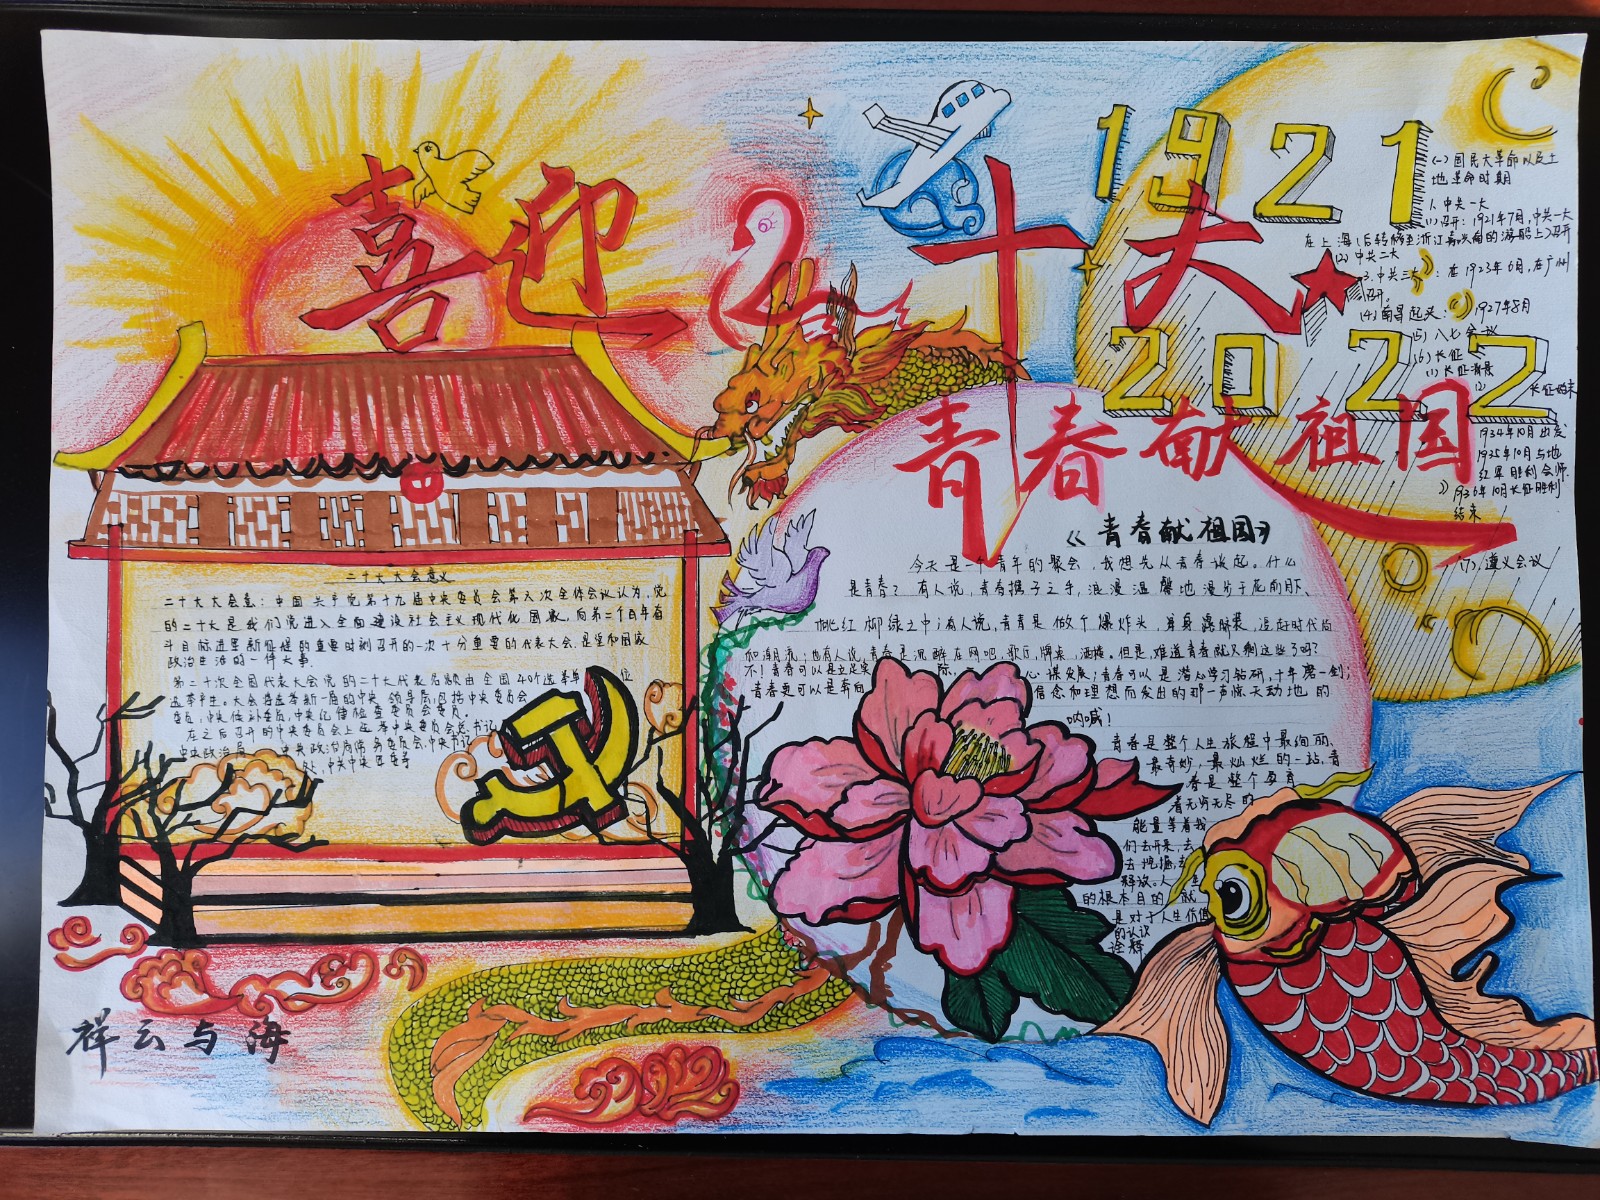 喜迎二十大
1921
2022
青春献祖国
二十大大会意义
二十大大会意:中国共产党第十九届中央委员会第六次全体会议认为,党
的二十大是我们党进入全面建设社会主义现代化国家,向第二个百年奋
斗目标进军新征程的重要时刻召开的一次十分重要的代表大会,是党和国家
政治生活的一件大事.
第二十次全国代表大会党的二十大代表名额由全国40个选举单位
选举产生。大会将选举新一届的中央领导层,包括中央委员会
委员,中央候补委员,中央纪律检查委员会委员.
在之后召开的中央委员会上选举中央委员会总书记
中央政治局 中央政治局常务委员会,中央书记
处,中共中央军委等
《青春献祖国》
今天是一个青年的聚会,我想先从青春谈起。什么
是青春?有人说,青春携子之手,浪漫温馨地漫步于花前月下、
桃红柳绿之中;有人说,青春是做个爆炸头,单身露脐装,没好时代尚
和潮流;也有人说,青春是沉醉在网吧,歌厅,牌桌,酒楼。但是,难道青春就只剩这些了吗?
不!青春可以是立足实际, 心谋发展;青春可以是潜心学习钻研,十年磨一剑;
青春更可以是奔向 信念和理想而发出的那一声惊天动地的
呐喊!
青春是整个人生旅程中最绚丽、
最奇妙,最灿烂的一站,青
春是整个孕育
着无穷无尽的
能量等着我
们去开来,去
去挖掘,去
释放。人生
的根本目的,就
是对于人生价值
的认识
诠释
(一)国民大革命以及土
地革命时期
1.中共一大
(1)召开:1921年7月,中共一大
在上海(后转移至浙江嘉兴南的游船上)召开
(2)中共二大
3.中共三大:在1923年6月,在广州
召开。
(4)南昌起义:1927年8月
(5)八七会议
(6)长征
(1)长征背景
(2)
长征始末
1934年10月出发
1935年10月与地
红军胜利会师.
1936年10月长征胜利
结束
(7),遵义会议
祥云与海